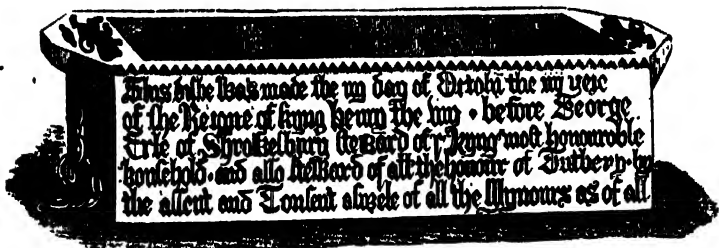 This dishe was made the iiij day of Octobr the iiij yere
of the Reigne of kyng Henry the viij • before George
Erle of Shrowesbury Steward of yͤ Kyng most honourable
houshold • and also Steward of all the honour of Tutbery • by
the assent and Consent aswele of all the Mynours as of all